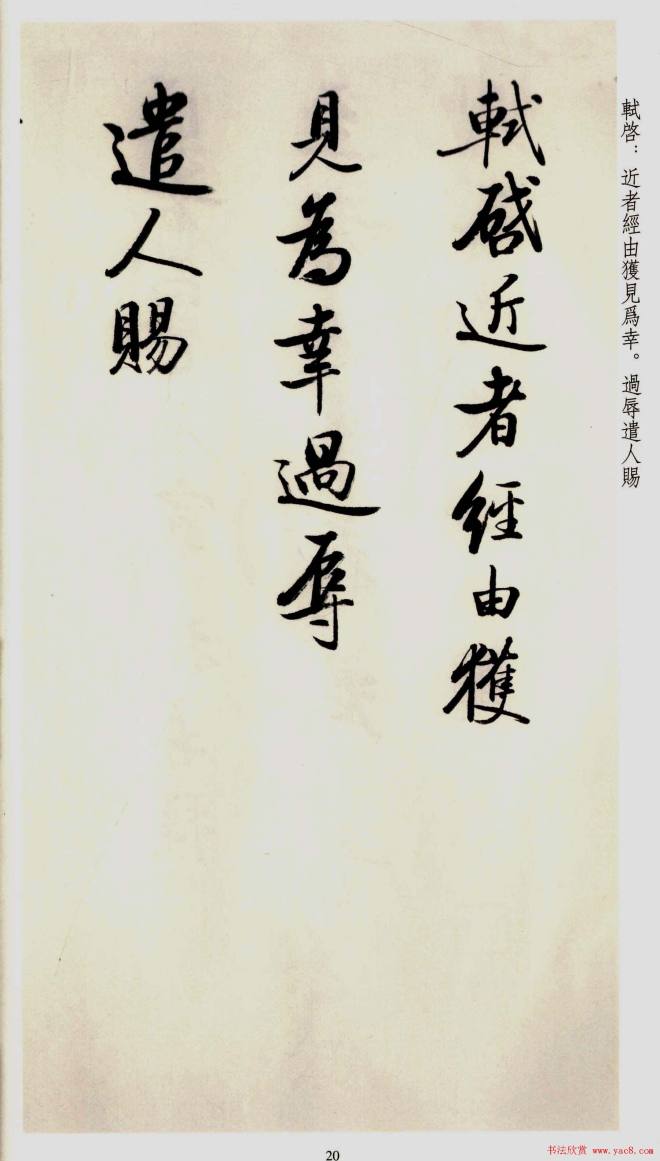 軾啓近者經由獲
見為幸過辱
遣人賜
軾啓：近者經由獲見爲幸。過辱遣人賜
20
书法欣赏 www.yac8.com